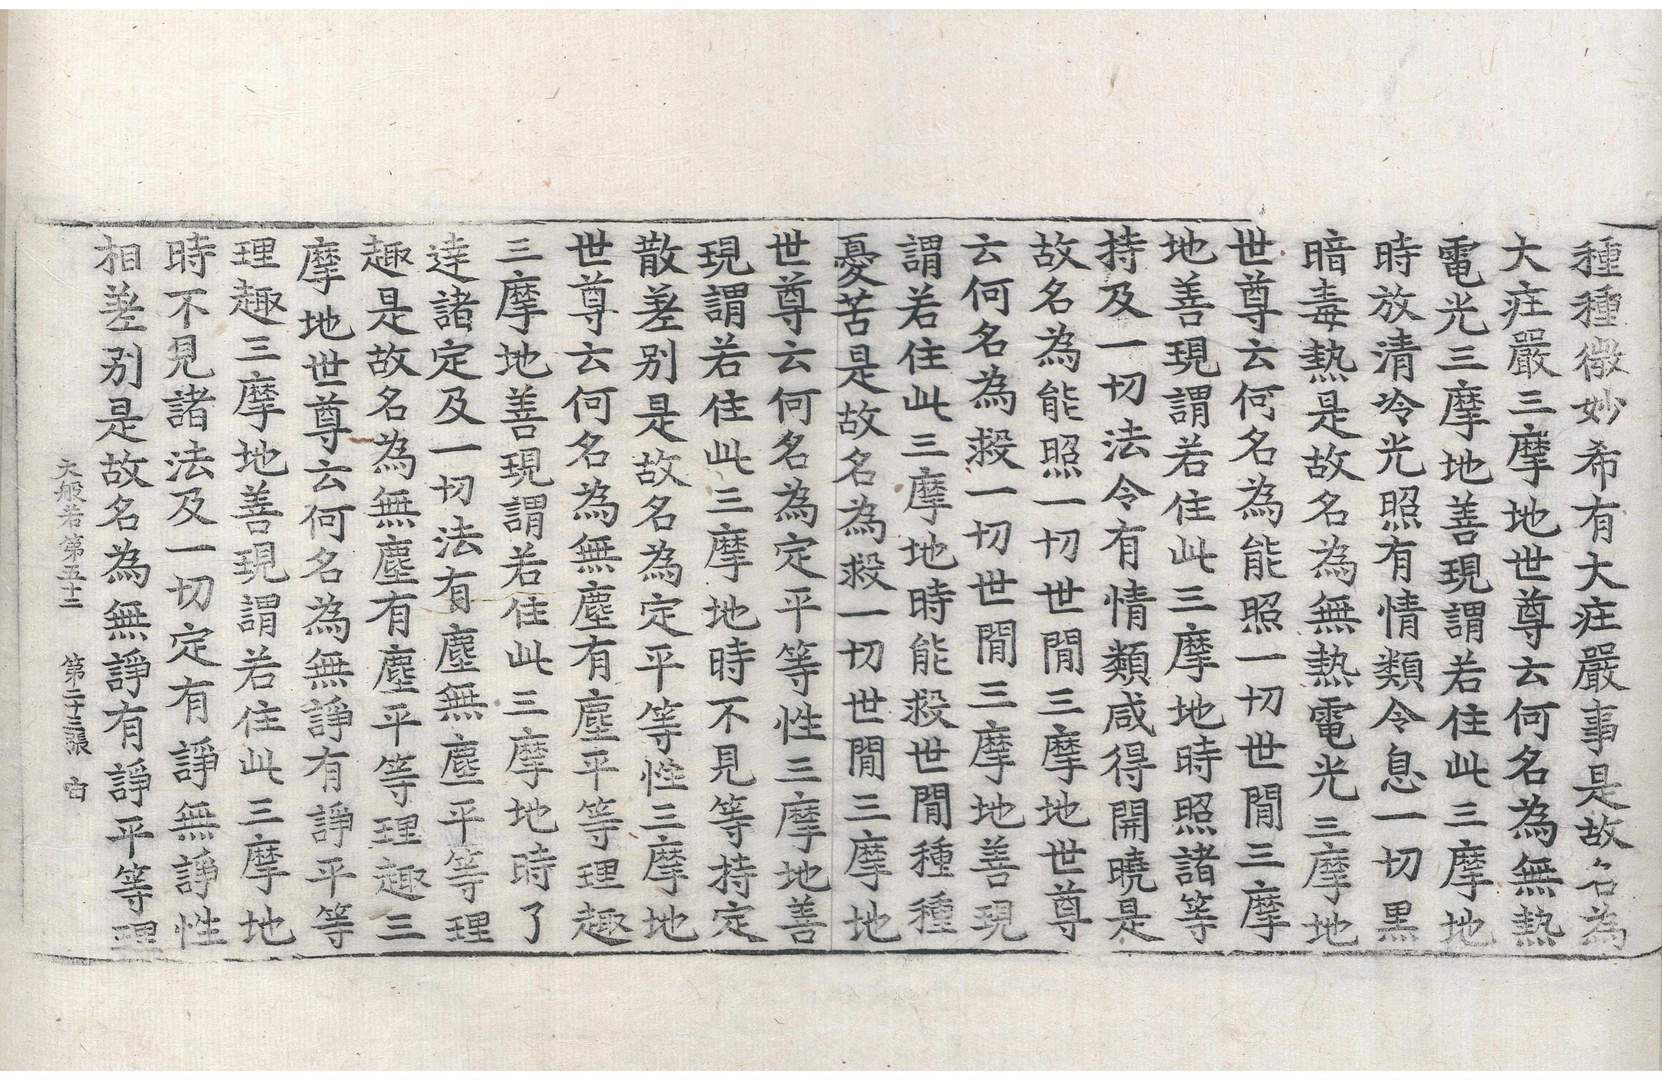 種種微妙希有大庄嚴事是故名為
大庄嚴三摩地世尊云何名為無熱
電光三摩地善現謂若住此三摩地
時放清冷光照有情類令息一切黑
暗毒熱是故名為無熱電光三摩地
世尊云何名為能照一切世閒三摩
地善現謂若住此三摩地時照諸等
持及一切法令有情類咸得開曉是
故名為能照一切世閒三摩地世尊
云何名為救一切世閒三摩地善現
謂若住此三摩地時能救世閒種種
憂苦是故名為救一切世閒三摩地
世尊云何名為定平等性三摩地善
現謂若住此三摩地時不見等持定
散差別是故名為定平等性三摩地
世尊云何名為無塵有塵平等理趣
三摩地善現謂若住此三摩地時了
達諸定及一切法有塵無塵平等理
趣是故名為無塵有塵平等理趣三
摩地世尊云何名為無諍有諍平等
理趣三摩地善現謂若住此三摩地
時不見諸法及一切定有諍無諍性
相差別是故名為無諍有諍平等理
大般若第五十二 第二十三張